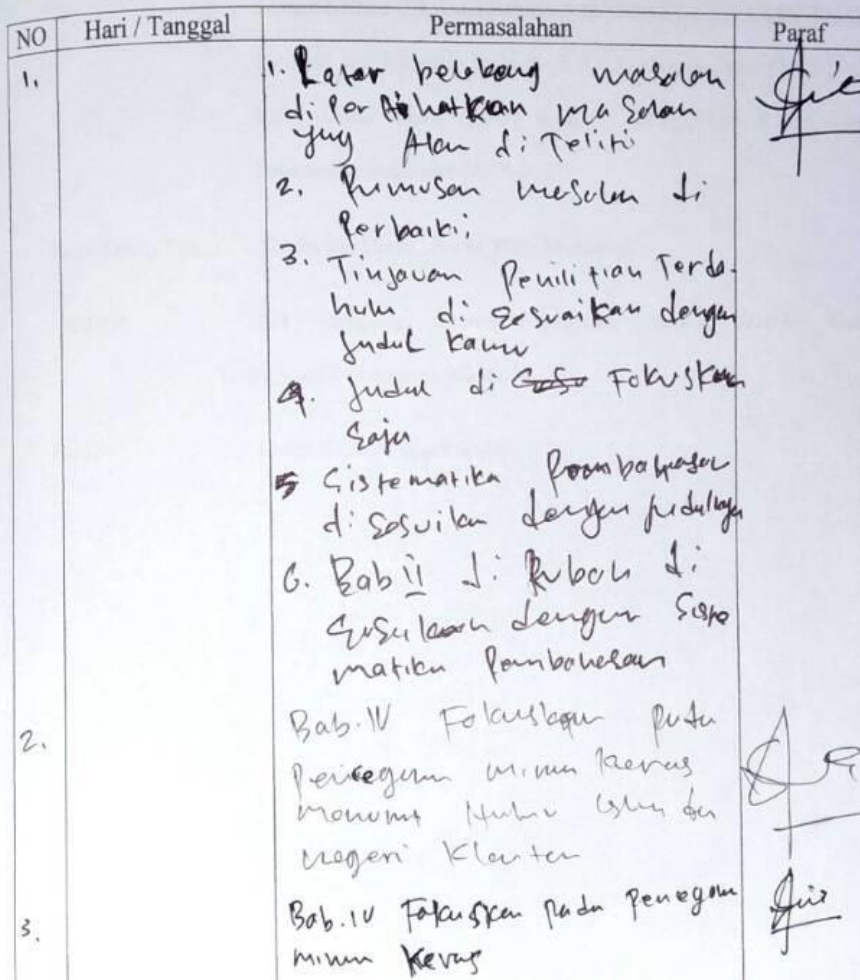 NO Hari / Tanggal Permasalahan Paraf
1. 1. Latar belakang masalah
di perlihatkan masalah
yng Akan di Teliti
2. Rumusan masalah di
Perbaiki
3. Tinjauan Penilitian Terda-
hulu di sesuaikan dengan
Judul kamu
4. Judul di Fokuskan
Saja
5 Sistematika Pembahasan
di sesuikan dengan judulnya
6. Bab II di Rubah di
sesuikan dengan Siste
matika Pembahasan
2. Bab.IV Fokuskan pada
Pencegahan minum keras
menurut Hukum Islam dan
negeri Klantan
3. Bab.IV Fokuskan pada Pencegahan
minum Keras